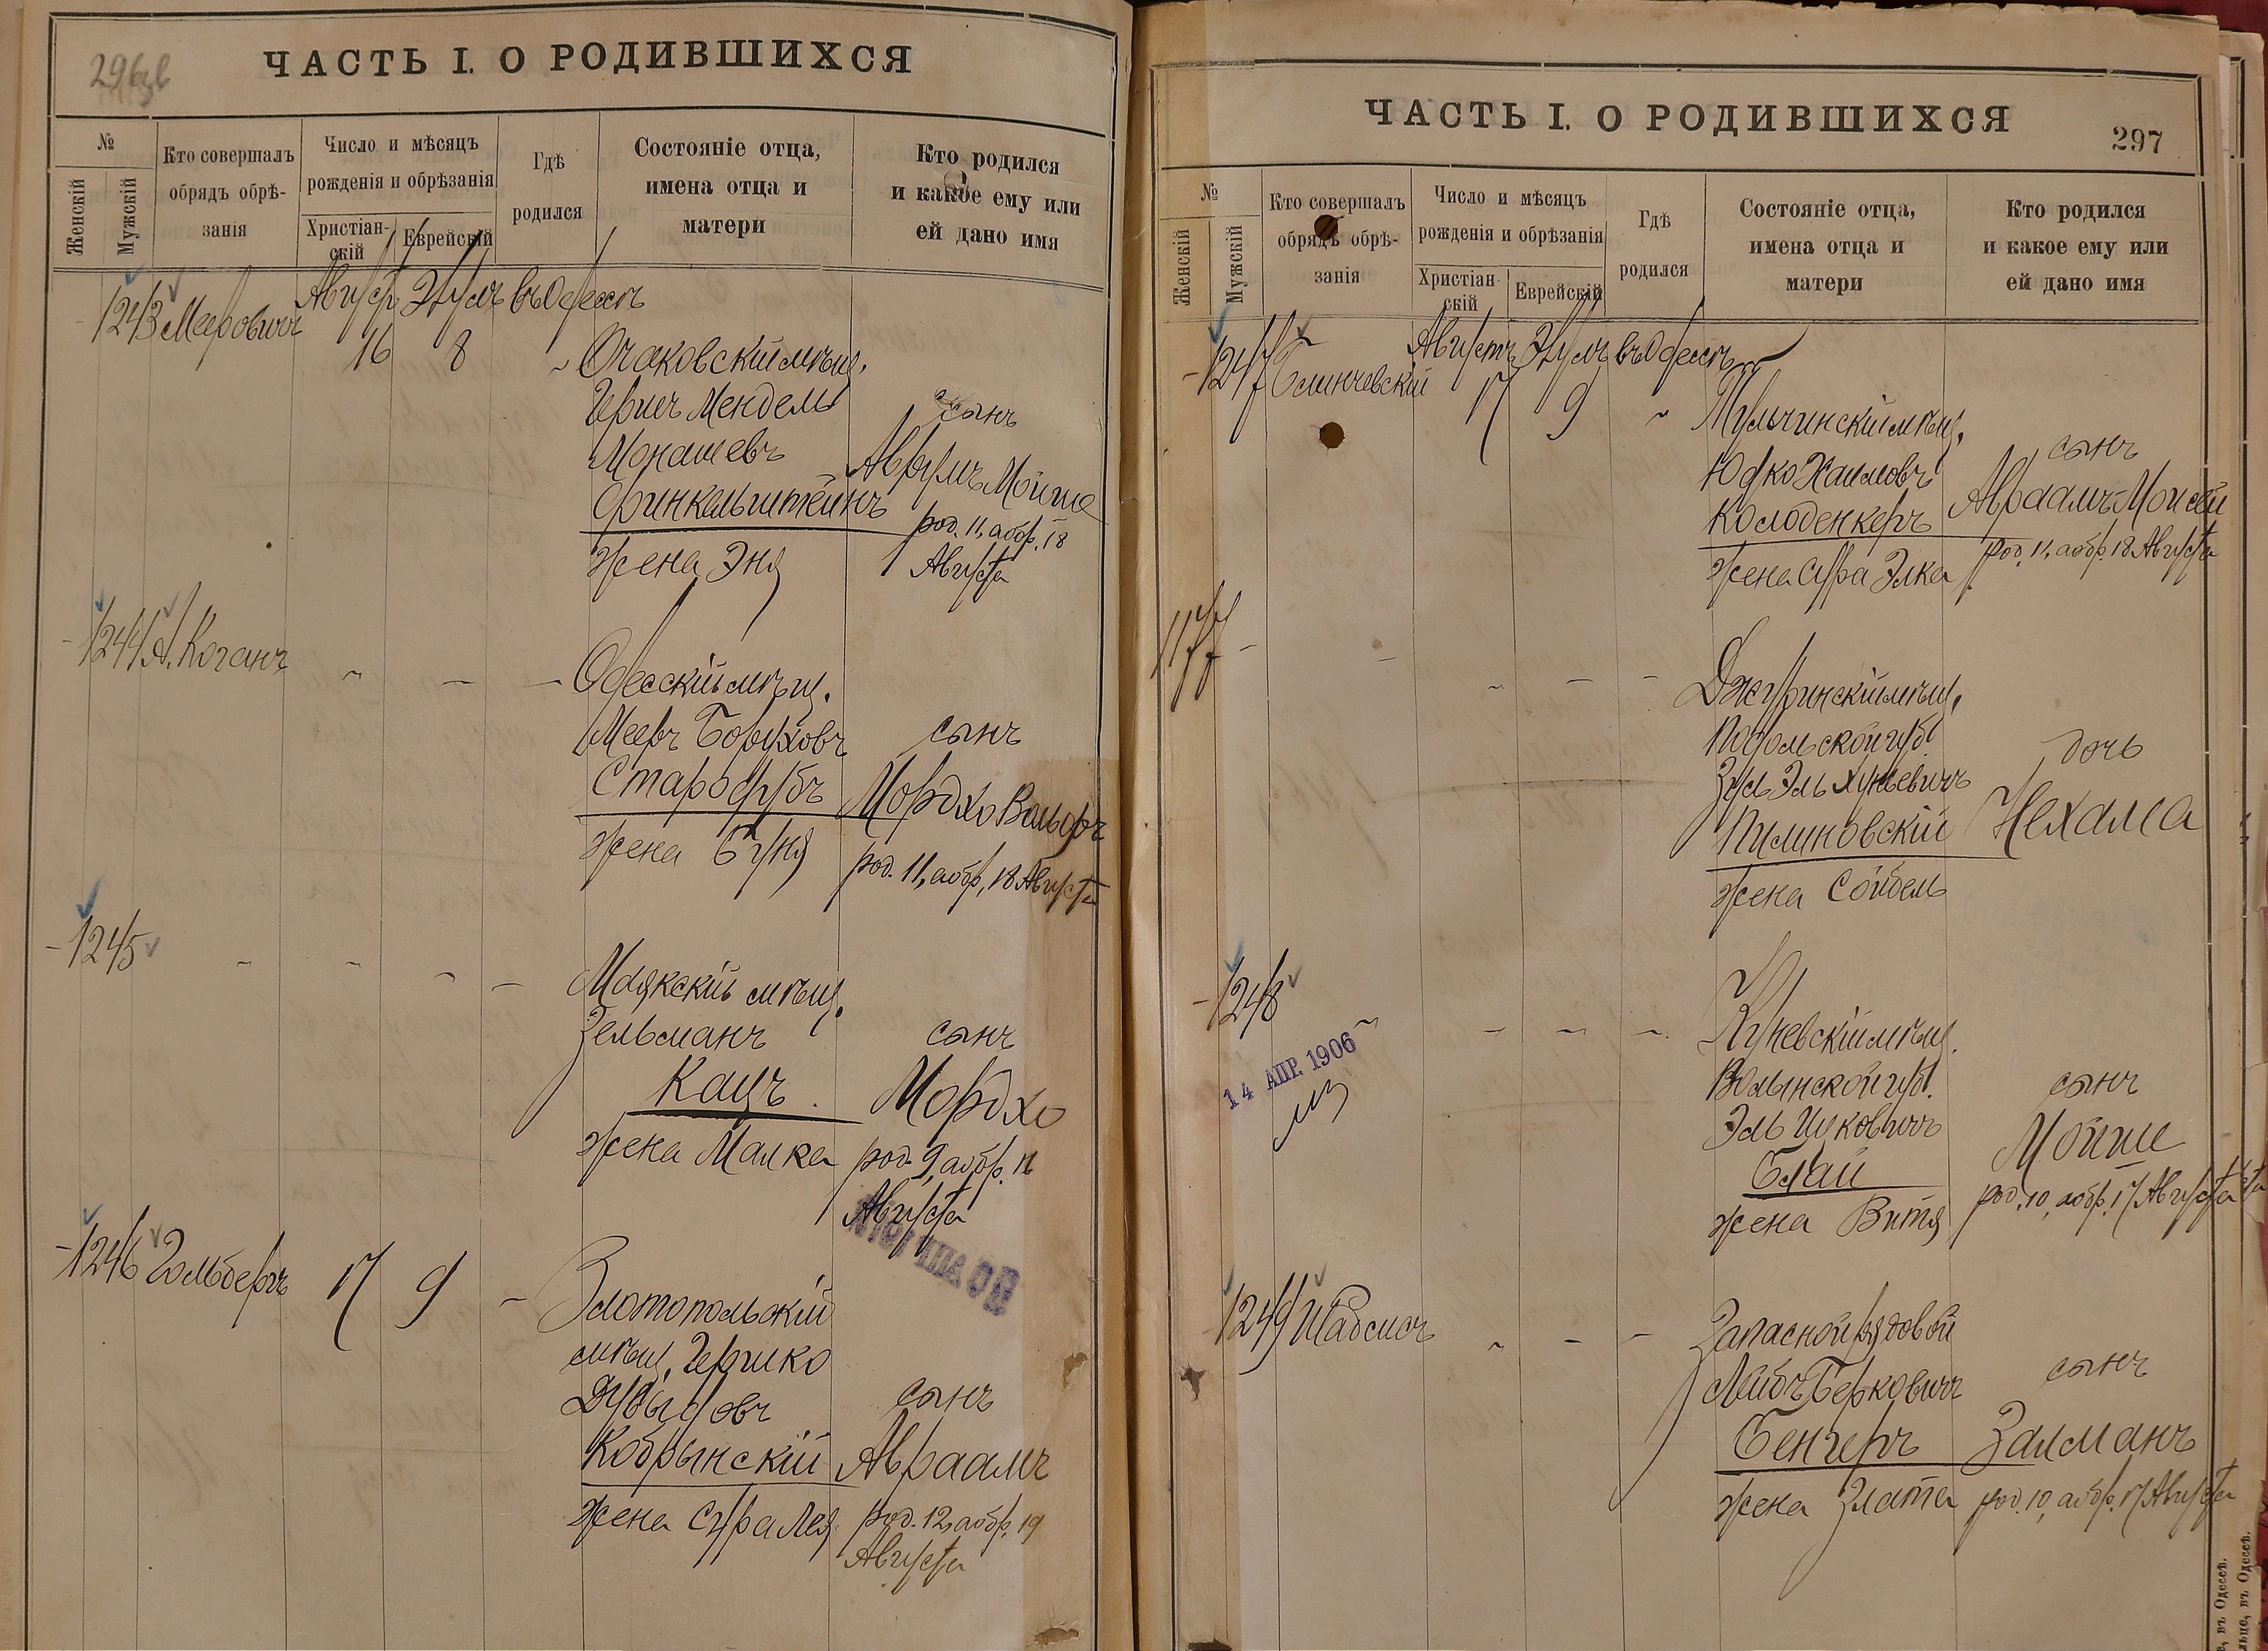 296об
ЧАСТЬ I. О РОДИВШИХСЯ
№
Женскій
Мужскій
Кто совершалъ
обрядъ обрѣ-
занія
Число и мѣсяцъ
рожденія и обрѣзанія
Христіан-
скій
Еврейскій
Гдѣ
родился
Состояніе отца,
имена отца и
матери
Кто родился
и какое ему или
ей дано имя
1243 Мееровичъ
Августъ Элулъ въ Одессѣ
16 8 Очаковскій мѣщ.
Гершъ Мендель
Монашевъ
Финкельштейнъ
жена Эня
сынъ
Аврумъ Мойше
род. 11, аобр. 18
Августа
1244 А. Коганъ
Одесскій мѣщ.
Мееръ Боруховъ
Стародубъ
жена Буня
сынъ
Мордхо Вольфъ
род. 11, аобр, 18 Августа
1245
Маякскій мѣщ.
Зельманъ
Кацъ.
жена Малка
сынъ
Мордхо
род. 9, аобр. 16
Августа
1246 Гольбергъ 17 9
Златопольскій
мѣщ. Гершко
Дувыдовъ
Кобрынскій
жена Сура Лея
сынъ
Авраамъ
род. 12, аобр. 19
Августа
ЧАСТЬ I. О РОДИВШИХСЯ
297
№
Женскій
Мужскій
Кто совершалъ
обрядъ обрѣ-
занія
Число и мѣсяцъ
рожденія и обрѣзанія
Христіан
скій
Еврейскій
Гдѣ
родился
Состояніе отца,
имена отца и
матери
Кто родился
и какое ему или
ей дано имя
1247
Августъ Элулъ въ Одессѣ
17 9 Тульчинскій мѣщ.
Юдко Хаимовъ
Колоденкеръ
жена Сура Элка
сынъ
Авраамъ-Моисей
род. 11, аобр. 18 Августа
1177
Джуринскій мѣщ.
Подольской губ.
Зусь Эльхуневичъ
Пилиновскій
жена Сойбель
дочь
Нехама
1248
14 АПР. 1906
Куневскій мѣщ.
Волынской губ.
Эль Ицковичъ
Блай
жена Витя
сынъ
Мойше
род. 10, аобр. 17 Августа
1249 Шабсисъ
Запасной рядовой
Лейбъ Берковичъ
Бенгеръ
жена Злата
сынъ
Залманъ
род. 10, аобр. 17 Августа
въ Одессѣ.
въ Одессѣ.